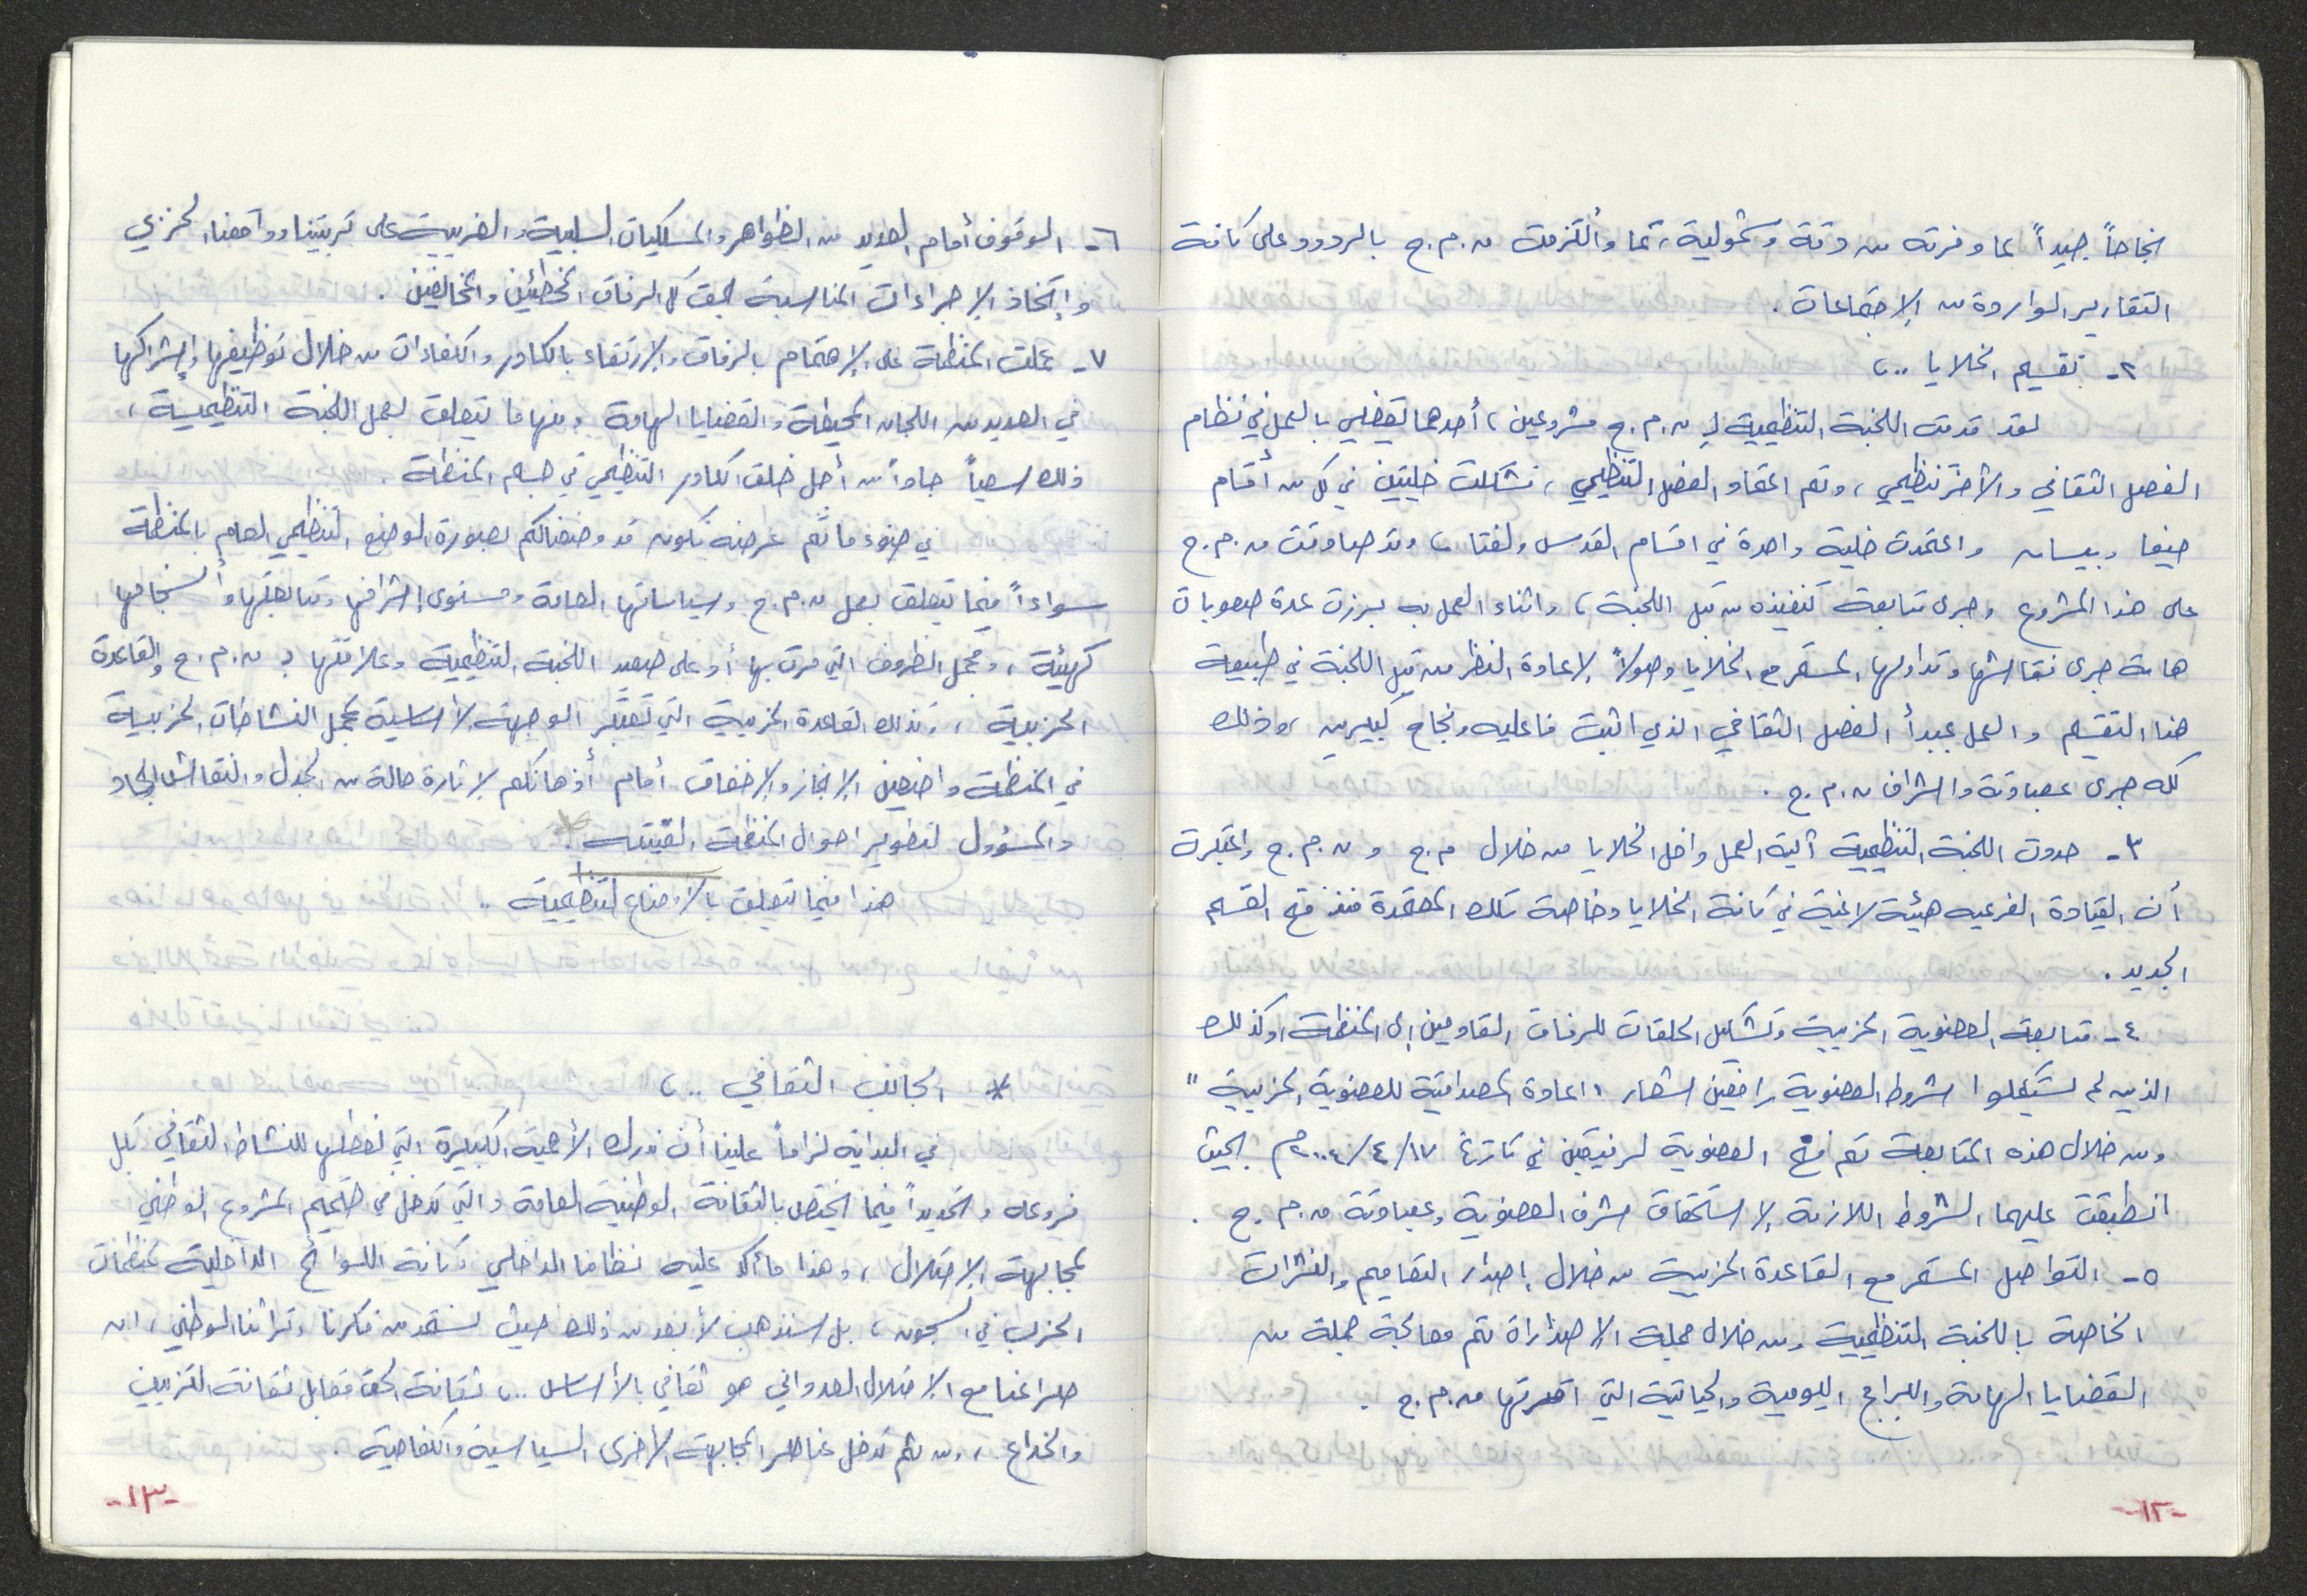 نجاحاً جيداً لما وفرته من دقة وشمولية، كما وألتزمت ل.م.ج بالردود على كافة
التقارير الواردة من الإجتماعات.
٢- تقسيم الخلايا ..،
لقد قدمت اللجنة التنظيمية لـ ل.م.ج مشروعين، أحدهما يقضي بالعمل في نظام
الفصل الثقافي والأخر تنظيمي، وتم اعتماد الفصل التنظيمي، تشكلت خليتين في كل من أقسام
حيفا وبيسان واعتمدت خلية واحدة في اقسام القدس ولفتا، وقد صادقت ل.م.ج
على هذا المشروع وجرى متابعة تنفيذه من قبل اللجنة، واثناء العمل به برزت عدة صعوبات
هامة جرى نقاشها وتداولها المستمر مع الخلايا وصولاً لإعادة النظر من قبل اللجنة في طبيعة
هذا التقسيم والعمل بمبدأ الفصل الثقافي الذي اثبت فاعليه ونجاح كبيرين، وذلك
كله جرى بمصادقة واشراف ل.م.ج.
٣- حددت اللجنة التنظيمية آلية العمل داخل الخلايا من خلال م.ج و ل.م.ج واعتبرت
أن القيادة الفرعيه هيئة لاغية في كافة الخلايا وخاصة تلك المعتمدة منذ فتح القسم
الجديد.
٤- متابعة العضوية الحزبية وتشكيل الحلقات للرفاق القادمين إلى المنظمة، وكذلك
الذين لم يستكملوا شروط العضوية رافعين شعار "اعادة المصداقية للعضوية الحزبية"
ومن خلال هذه المتابعة تم منح العضوية لرفيقين في تاريخ ١٧/٤/٢٠٠٤م بحيث
انطبقت عليهما الشروط اللازمة لإستحقاق شرف العضوية وبمصادقة ل.م.ج.
٥- التواصل المستمر مع القاعدة الحزبية من خلال إصدار التعاميم والنشرات
الخاصة باللجنة التنظيمية ومن خلال عملية الإصدارات تم معالجة جملة من
القضايا الهامة والبرامج اليومية والحياتية التي اقرتها ل.م.ج.
-١٢-
٦- الوقوف أمام العديد من الظواهر والمسلكيات السلبية والغريبة على تربيتنا وواقعنا الحزبي
وإتخاذ الإجراءات المناسبة بحق كل الرفاق المخطئين والمخالفين.
٧- عملت المنظمة على الإهتمام بالرفاق والإرتقاء بالكادر والكفاءات من خلال توظيفها وإشراكها
في العديد من اللجان المحيطة والقضايا الهامة ومنها ما يتعلق بعمل اللجنة التنظيمية،
وذلك سعياً جاداً من أجل خلق الكادر التنظيمي في جسم المنظمة.
في ضوء ما تم عرضه نكون قد وضعناكم بصورة الوضع التنظيمي العام بالمنظمة
سواءاً فيما يتعلق بعمل ل.م.ج وسياساتها العامة ومستوى إشرافها ومتابعتها وأنسجامها
كهيئة، ومجمل الظروف التي مرت بها أو على صعيد اللجنة التنظيمية وعلاقتها بـ ل.م.ج والقاعدة
الحزبية، وكذلك القاعدة الحزبية التي تعتبر الوجهة الأساسية لمجمل النشاطات الحزبية
في المنظمة واضعين الإنجاز والإخفاق أمام أذهانكم لإثارة حالة من الجدل والنقاش الجاد
والمسؤول لتطوير احوال المنظمة الفتيته.
هذا فيما يتعلق بالأوضاع التنظيمية ..
* الجانب الثقافي ..،
في البداية لزاماً علينا أن ندرك الأهمية الكبيرة التي نعطيها للنشاط الثقافي بكل
فروعه وتحديداً فيما يختص بالثقافة الوطنية العامة والتي تدخل في صميم المشروع الوطني
لمجابهة الإحتلال، وهذا ما أكد عليه نظامنا الداخلي وكافة اللوائح الداخلية لمنظمات
الحزب في السجون، بل سنذهب لأبعد من ذلك حيث نستمد من فكرنا وتراثنا الوطني، ان
صراعنا مع الإحتلال العدواني هو ثقافي بالأساس ..، ثقافة الحق مقابل ثقافة التزييف
والخداع، ومن ثم تدخل عناصر المجابهة الأخرى السياسية والكفاحية.
-١٣-